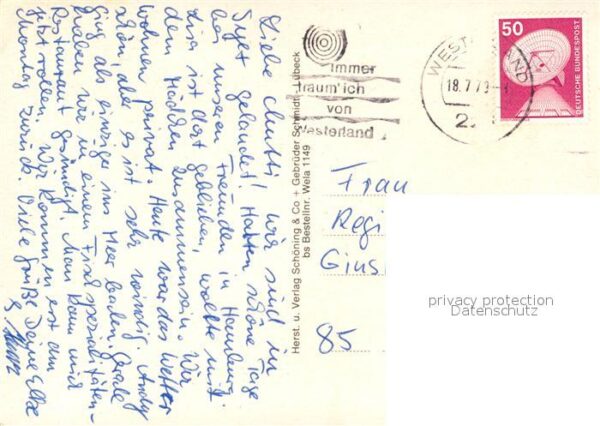 Liebe Mutti! Wir sind in
Sylt gelandet! Hatten schöne Tage
bei unseren Freunden in Hamburg.
Lisa ist dort geblieben, wollte mit
den Mädchen zusammensein. Wir
wohnen privat. Heute war das Wetter
schön, aber es ist sehr windig. Andy
ging als einziger ins Meer baden. Gerade
haben wir in einem Fischspezialitäten-
Restaurant gespeist. Man kann mich
jetzt rollen. Wir kommen erst am
Montag zurück. Viele Grüße Deine Elke
Herst. u. Verlag Schöning & Co + Gebrüder Schmidt, Lübeck
bs Bestellnr. Wela 1149
immer
traum' ich
von
Westerland
WESTERLAND
18.7.79
2
50
DEUTSCHE BUNDESPOST
Frau
Regi
Gius
85
privacy protection
Datenschutz